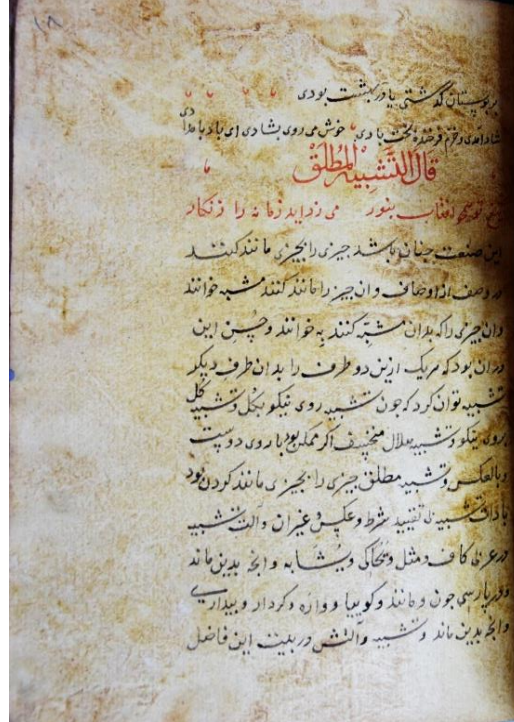 ۱۸
بر بوستان گذشتی یا در بهشت بودی
شاد آمدی و خرم فرخنده بخت بادی خوش می روی بشادی ای باد بامدادی
قال التشبیه المطلق
تیغ تو همچو آفتاب بنور می زداید زمانه را زنکار
این صنعت چنان باشد چیزی را بچیزی مانند کنند
در وصف از اوصاف و ان چیز را مانند کنند مشبه خوانند
و ان چیزی را که بدان مشبه کنند به خوانند و حسن این
در ان بود که هر یک ازین دو طرف را بدان طرف دیکر
تشبیه توان کرد که جون تشبیه روی نیکو بکل و تشبیه کل
بروی نیکو و تشبیه هلال اکر ممکن بود با روی دوست
و بالعکس و تشبیه مطلق چیزی را بچیزی مانند کردن بود
بادات تشبیه تقیید شرط و عکس و غیر ان و آلت تشبیه
در عربی کاف و مثل و تحاکی و یشابه و انچه بدین ماند
و در پارسی جون و مانند و کوییا و واره و کردار و پنداری
و انچه بدین ماند و تشبیه و آلتش در بیت این فاضل